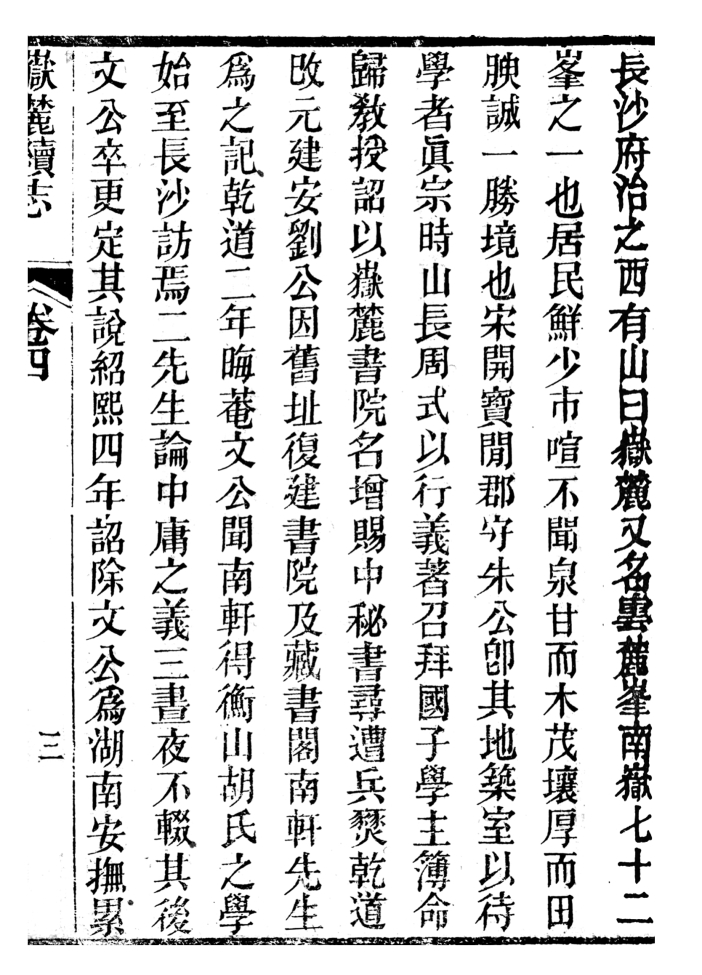 長沙府治之西有山曰嶽麓又名雲麓峯南嶽七十二
峯之一也居民鮮少市喧不聞泉甘而木茂壤厚而田
腴誠一勝境也宋開寶閒郡守朱公卽其地築室以待
學者眞宗時山長周式以行義著召拜國子學主簿命
歸教授詔以嶽麓書院名增賜中秘書尋遭兵燹乾道
改元建安劉公因舊址復建書院及藏書閣南軒先生
爲之記乾道二年晦菴文公聞南軒得衡山胡氏之學
始至長沙訪焉二先生論中庸之義三晝夜不輟其後
文公卒更定其說紹熙四年詔除文公爲湖南安撫累
嶽麓續志 卷四 三